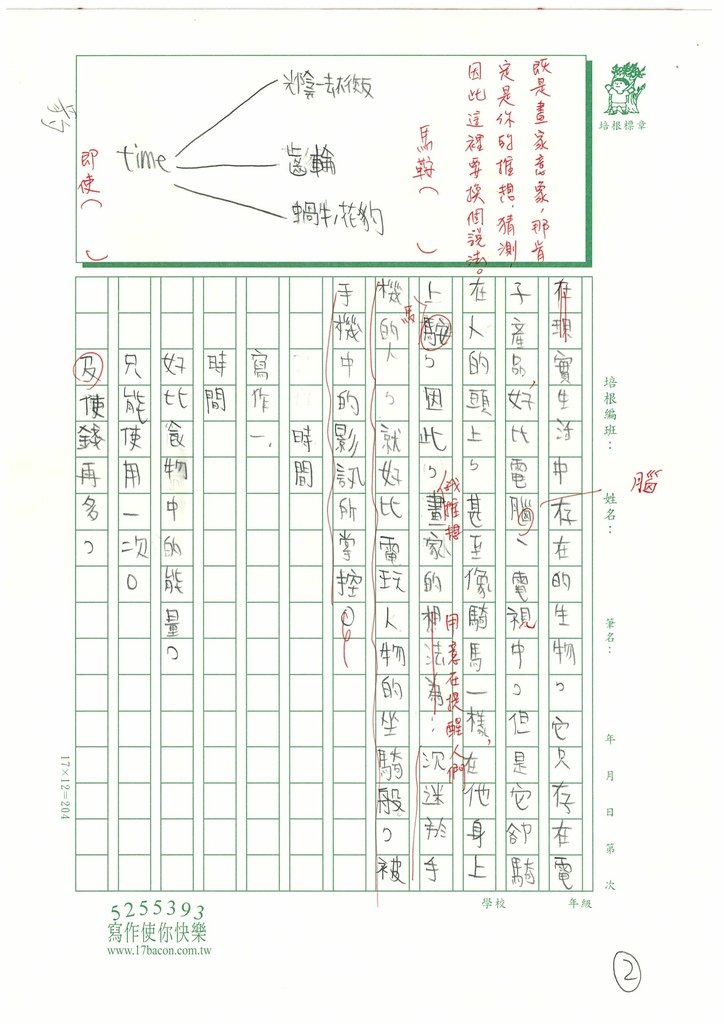 既是畫家意象,那肯
定是你的推想.猜測,
因此這裡要換個說法。
馬鞍(　　)
time
光陰一去不復返
齒輪
蝸牛/花豹
即使(　　)
培根標章
在現實生活中存在的生物,它只存在電
子產品,好比電腦、電視中,但是它卻騎
在人的頭上,甚至像騎馬一樣,在他身上
上鞍,因此,畫家的想法為:沉迷於手
機的人,就好比電玩人物的坐騎般,被
手機中的影訊所掌控。
腦
馬
我推想
用意在提醒人們
時間
寫作一、
時間
好比食物中的能量,
只能使用一次。
及使錢再多,
培根編班:
姓名:
筆名:
年 月 日 第 次
學校
年級
17×12=204
5255393
寫作使你快樂
www.17bacon.com.tw
2